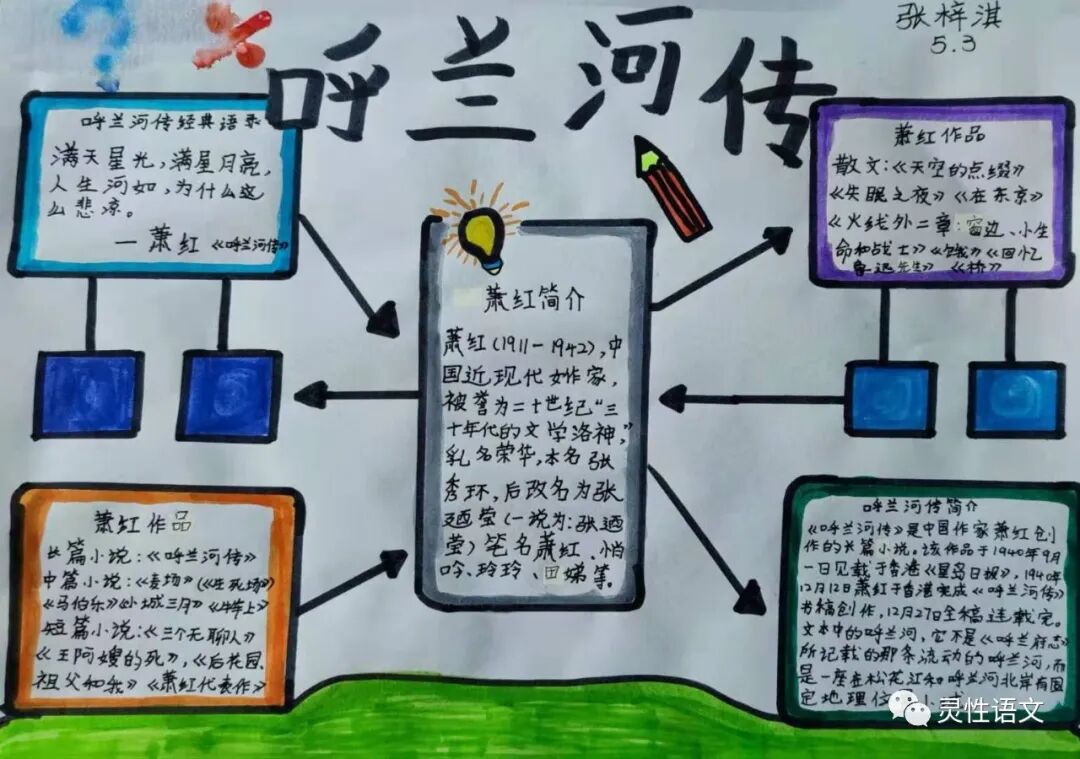 呼兰河传
张梓淇
5.3
呼兰河传经典语录
满天星光,满星月亮,
人生河如,为什么这
么悲凉。
— 萧红《呼兰河传》
萧红简介
萧红(1911-1942),中
国近现代女作家,
被誉为二十世纪“三
十年代的文学洛神,”
乳名荣华,本名张
秀环,后改名为张
廼莹(一说为:张迺
莹)笔名萧红、悄
吟、玲玲、田娣等。
萧红作品
散文:《天空的点缀》
《失眠之夜》《在东京》
《火线外二章:窗边、小生
命和战士》《饿》《回忆
鲁迅先生》《桥》
萧红作品
长篇小说:《呼兰河传》
中篇小说:《麦场》《生死场》
《马伯乐》《小城三月》《牛车上》
短篇小说:《三个无聊人》
《王阿嫂的死》,《后花园,
祖父和我》《萧红代表作》
呼兰河传简介
《呼兰河传》是中国作家萧红创
作的长篇小说。该作品于1940年9月
一日见载于香港《星岛日报》,1940年
12月12日萧红于香港完成《呼兰河传》
书稿创作,12月27日全稿连载完。
文本中的呼兰河,它不是《呼兰府志》
所记载的那条流动的呼兰河,而
是一座在松花江和呼兰河北岸有固
定地理位 小城
灵性语文